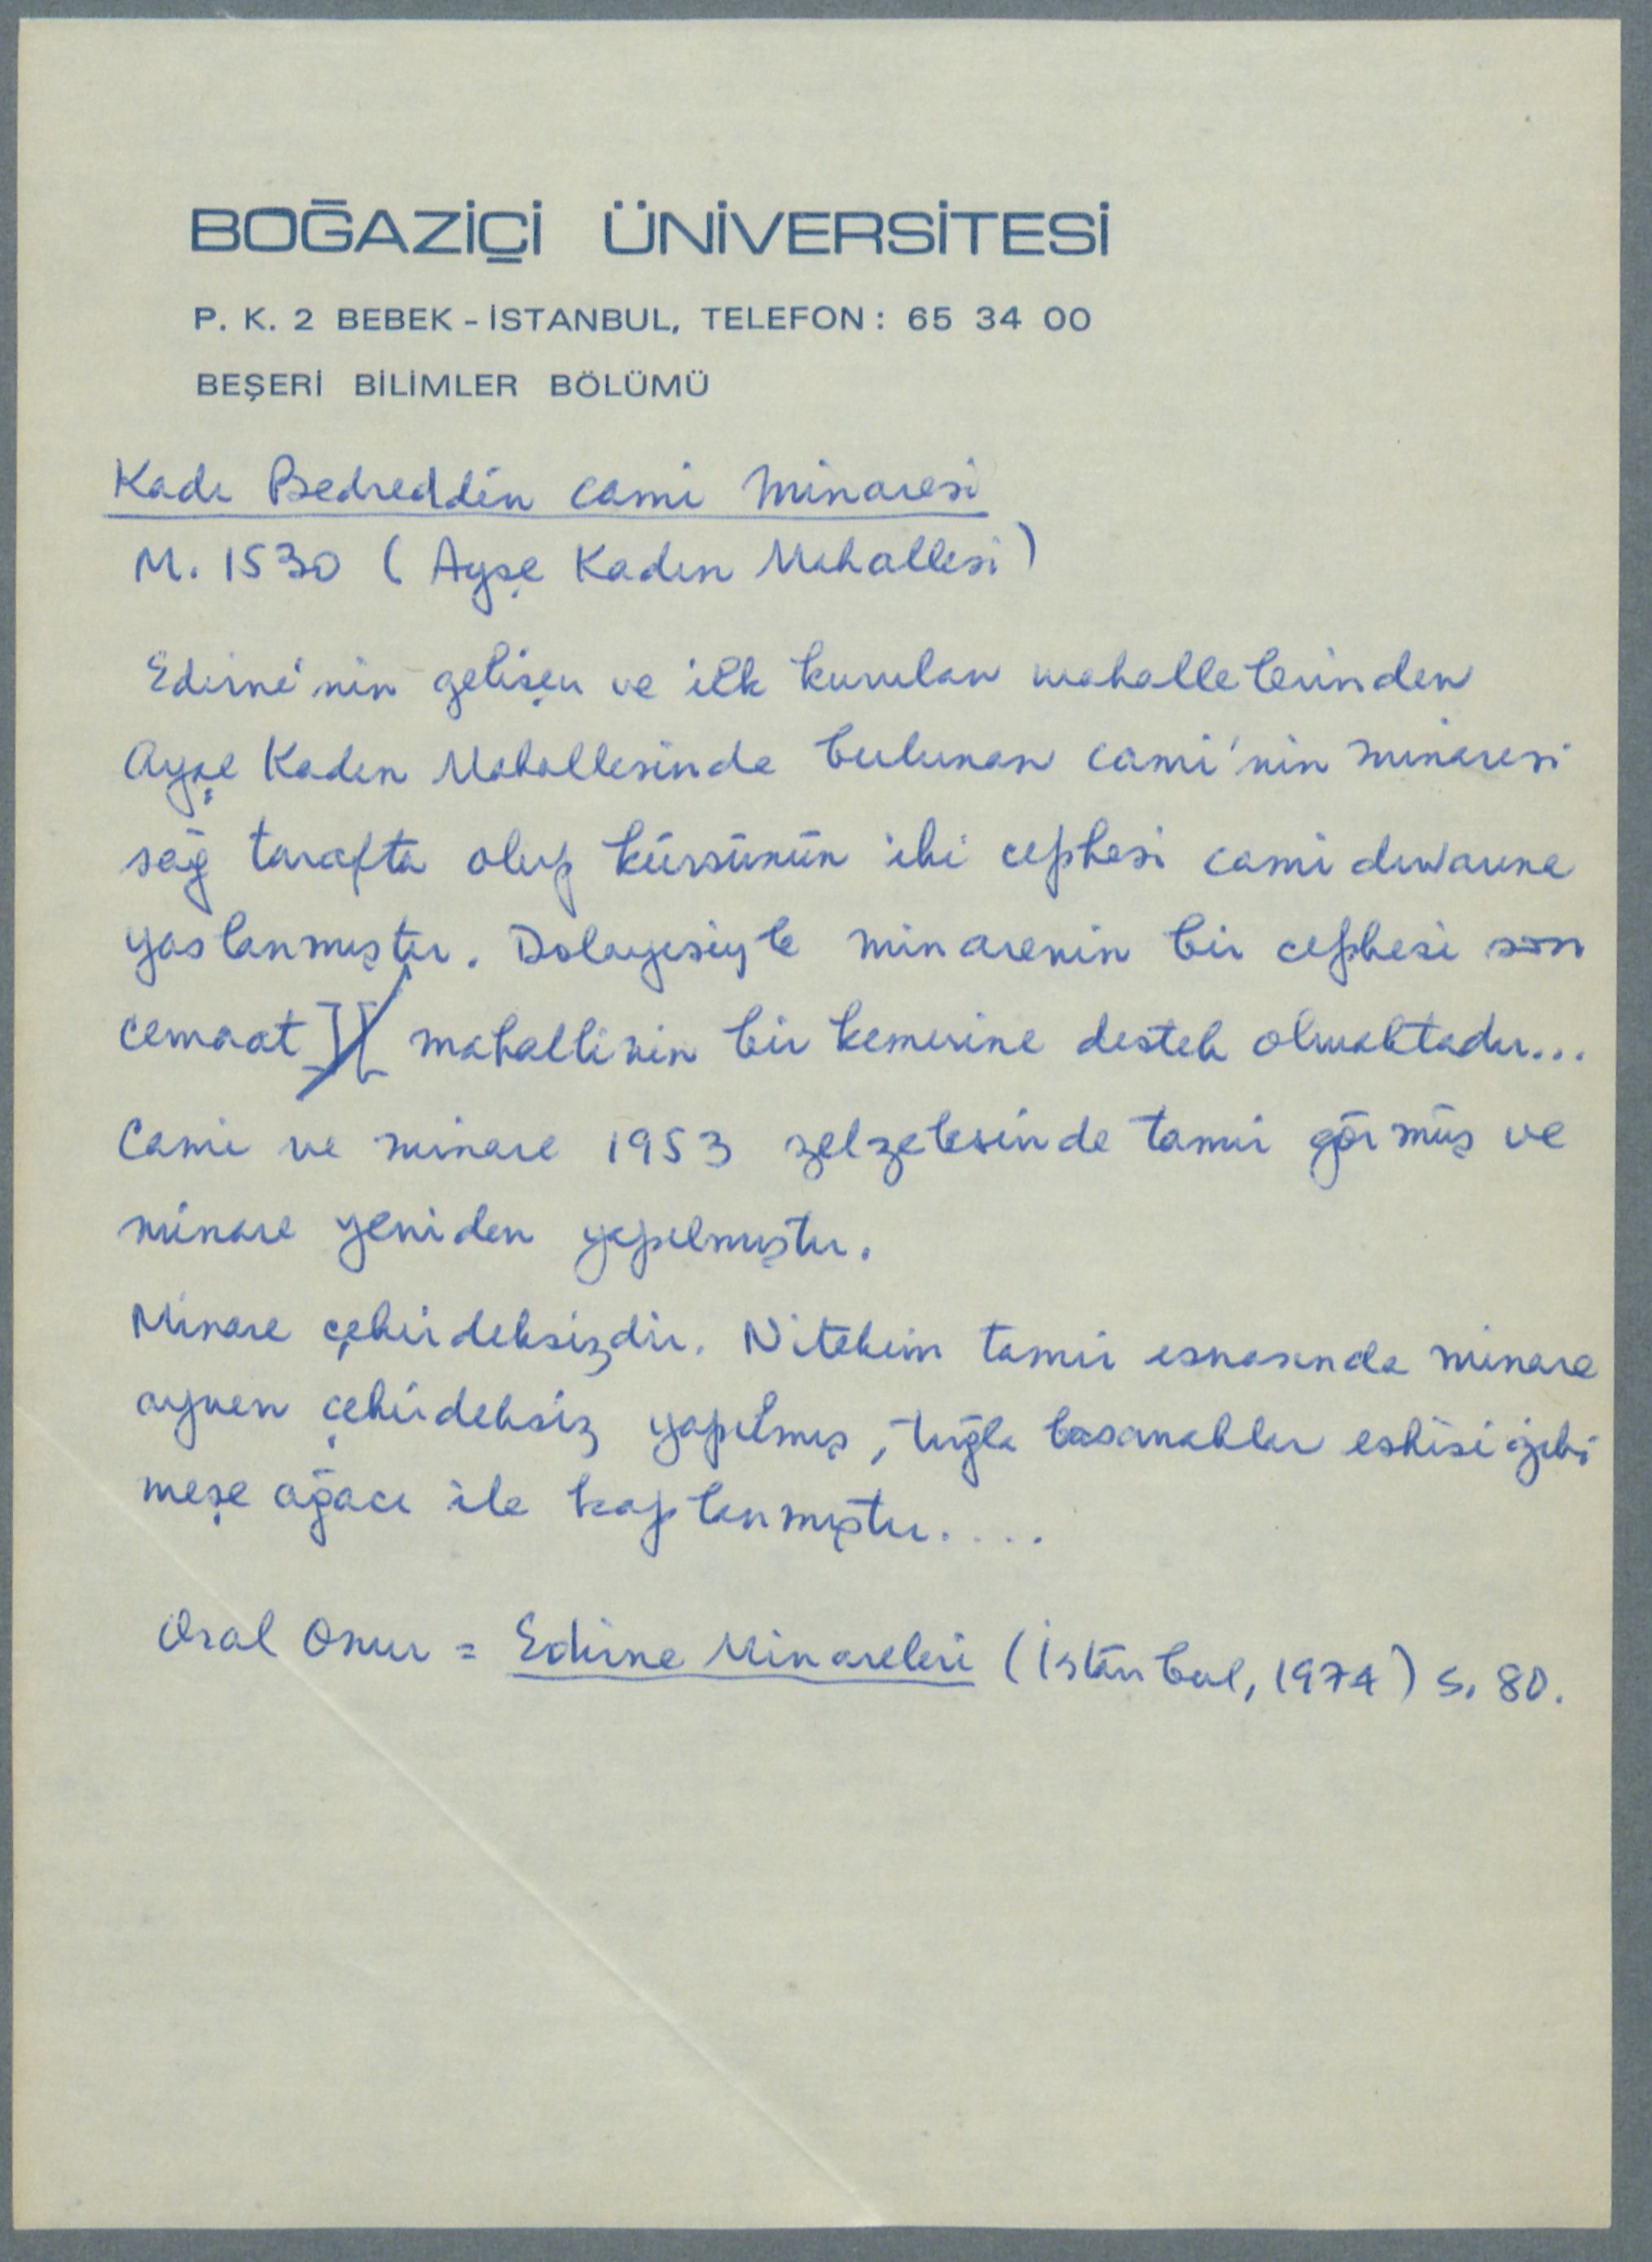 BOĞAZİÇİ ÜNİVERSİTESİ
P. K. 2 BEBEK - İSTANBUL, TELEFON : 65 34 00
BEŞERİ BİLİMLER BÖLÜMÜ
Kadı Bedreddin Cami Minaresi
M. 1530 ( Ayşe Kadın Mahallesi )
Edirne'nin gelişen ve ilk kurulan mahallelerinden
Ayşe Kadın Mahallesinde bulunan cami'nin minaresi
sağ tarafta olup kürsünün iki cephesi cami duvarına
yaslanmıştır. Dolayısiyle minarenin bir cephesi son
cemaat mahallinin bir kemerine destek olmaktadır...
Cami ve minare 1953 zelzelesinde tamir görmüş ve
minare yeniden yapılmıştır.
Minare çekirdeksizdir. Nitekim tamir esnasında minare
aynen çekirdeksiz yapılmış, tuğla basamaklar eskisi gibi
meşe ağacı ile kaplanmıştır....
Oral Onur = Edirne Minareleri (İstanbul, 1974) s. 80.